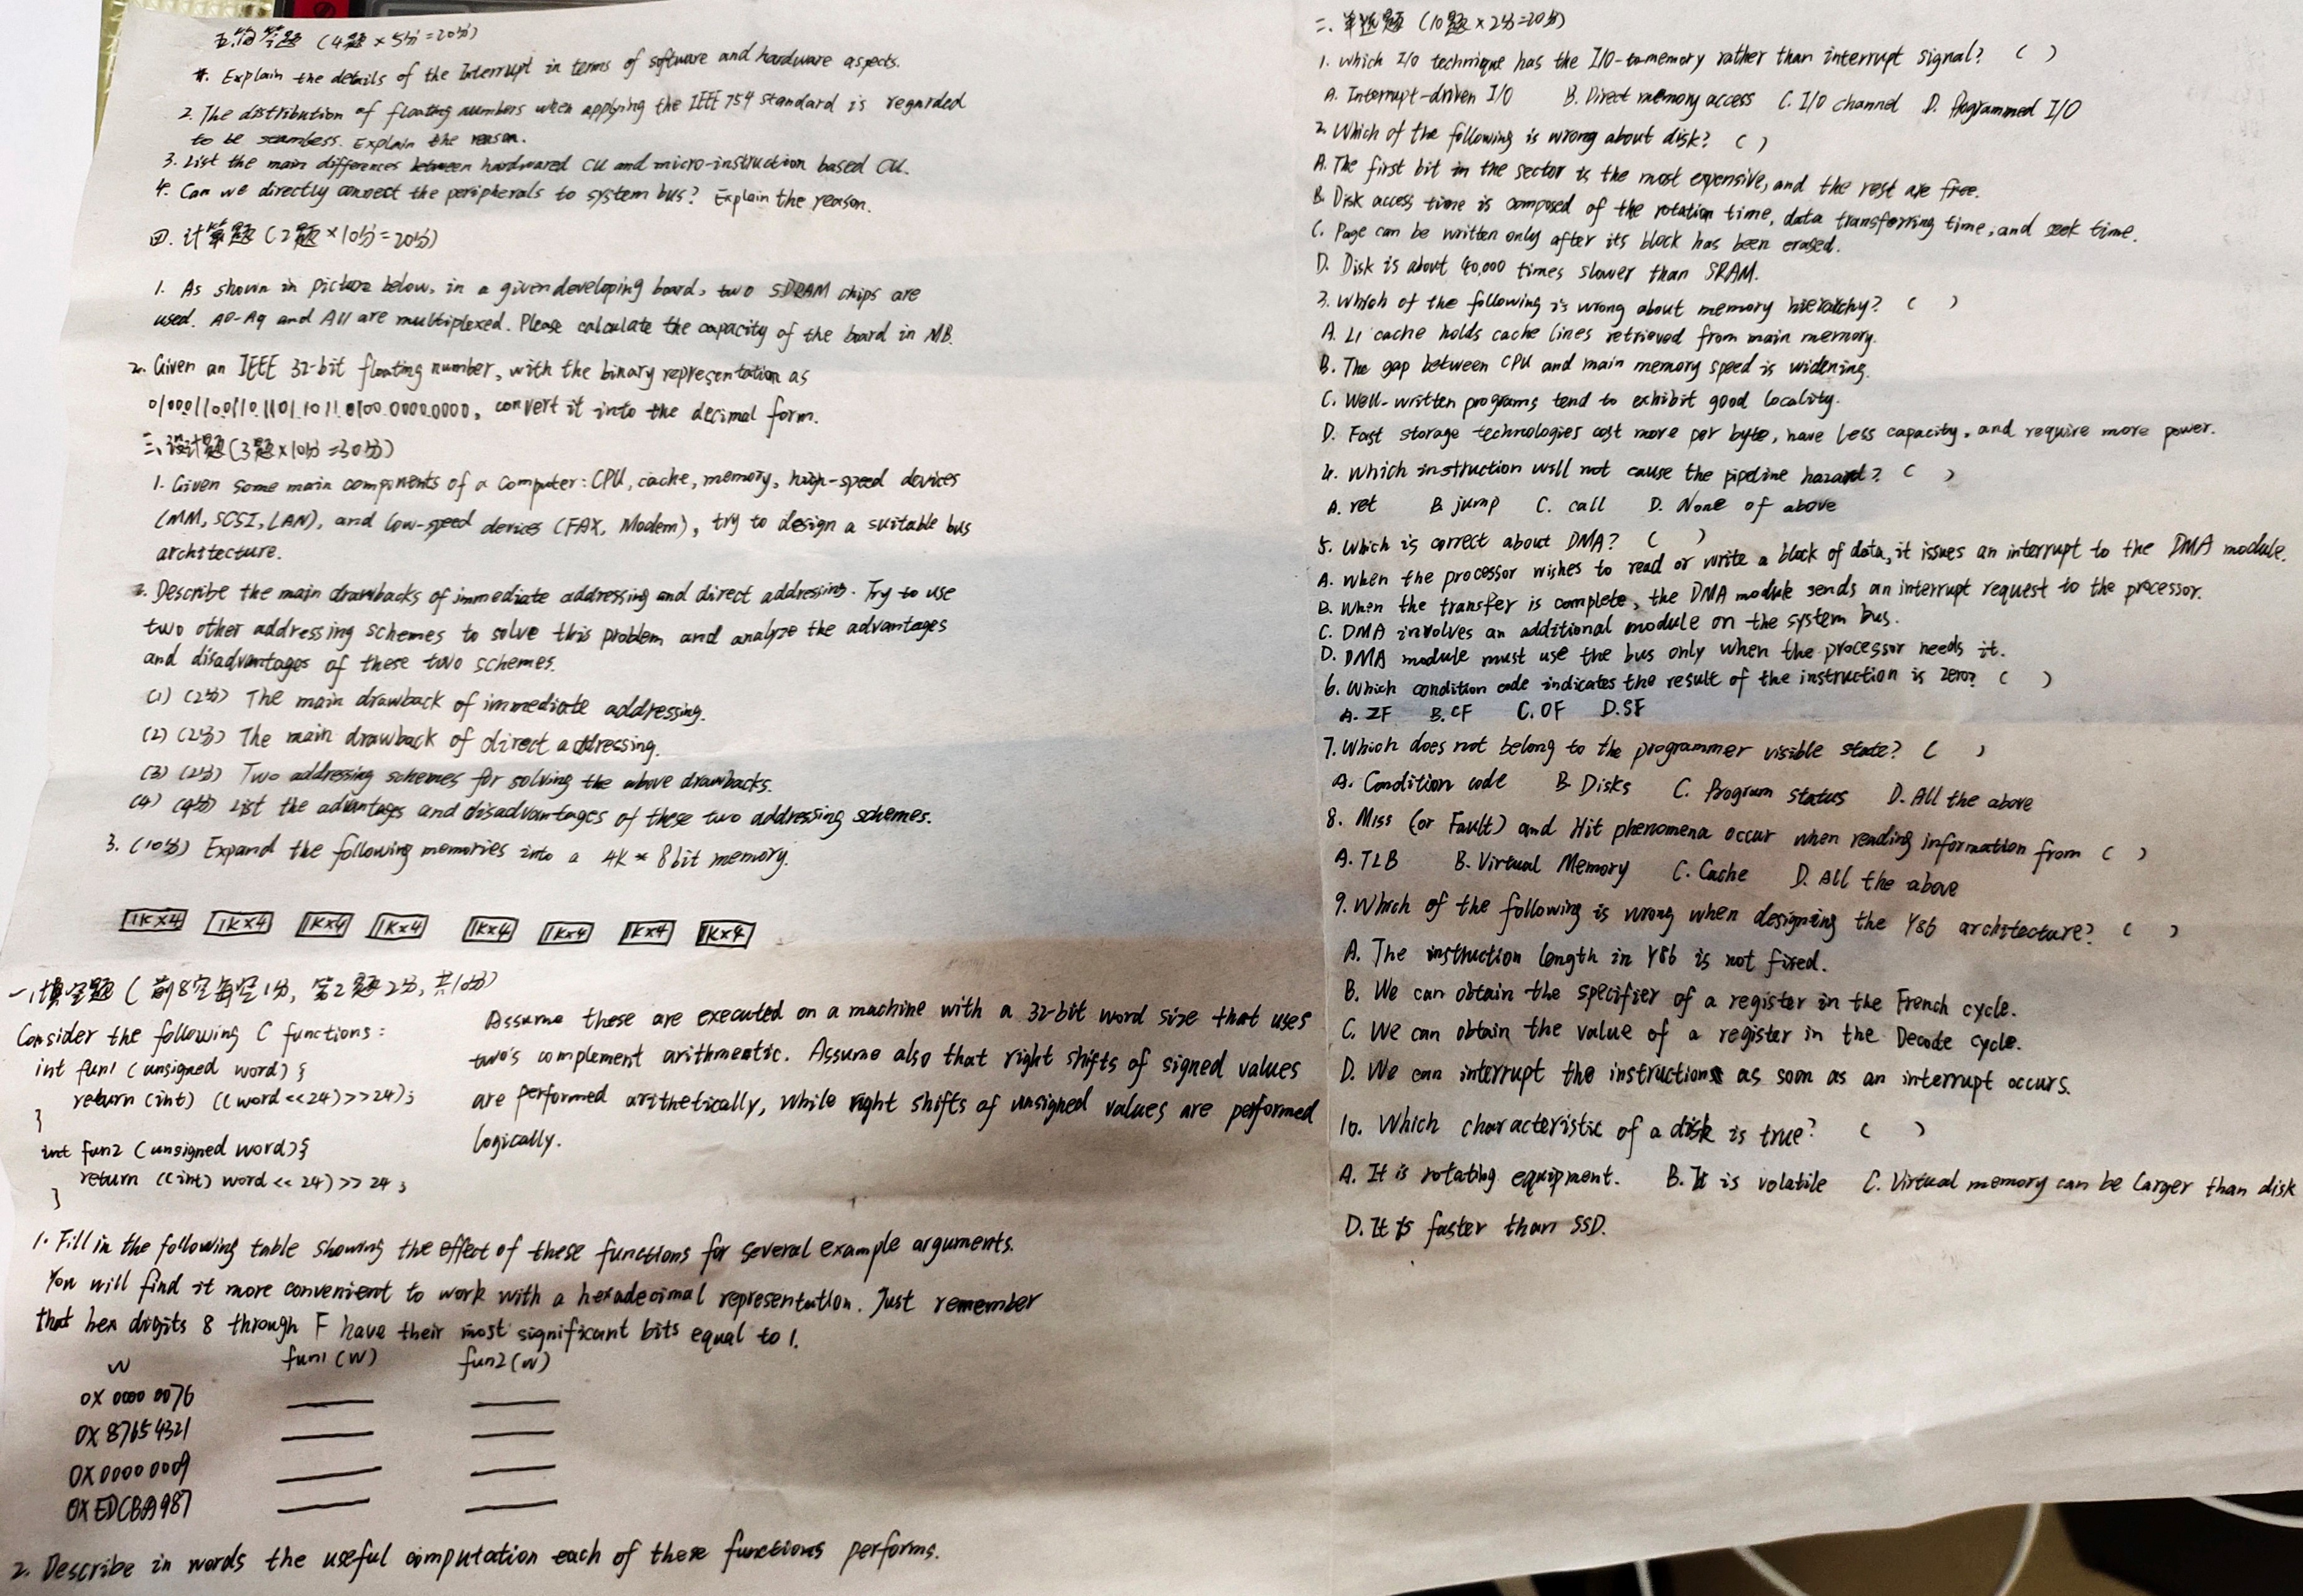 五.简答题 (4题×5分=20分)
1. Explain the details of the Interrupt in terms of software and hardware aspects.
2. The distribution of floating numbers when applying the IEEE 754 standard is regarded
to be seamless. Explain the reason.
3. List the main differences between hardwared CU and micro-instruction based CU.
4. Can we directly connect the peripherals to system bus? Explain the reason.
四. 计算题 (2题×10分=20分)
1. As shown in picture below, in a given developing board, two SDRAM chips are
used. A0-A9 and A11 are multiplexed. Please calculate the capacity of the board in MB.
2. Given an IEEE 32-bit floating number, with the binary representation as
convert it into the decimal form.
三.设计题 (3题×10分=30分)
1. Given some main components of a computer: CPU, cache, memory, high-speed devices
(MM, SCSI, LAN), and low-speed devices (FAX, Modem), try to design a suitable bus
architecture.
2. Describe the main drawbacks of immediate addressing and direct addressing. Try to use
two other addressing schemes to solve this problem and analyze the advantages
and disadvantages of these two schemes.
(1) (2分) The main drawback of immediate addressing.
(2) (2分) The main drawback of direct addressing.
(3) (2分) Two addressing schemes for solving the above drawbacks.
(4) (4分) List the advantages and disadvantages of these two addressing schemes.
3. (10分) Expand the following memories into a 4K * 8bit memory.
1K×4 1K×4 1K×4 1K×4 1K×4 1K×4 1K×4 1K×4
一.填空题 (前8空每空1分, 第2题2分, 共10分)
Consider the following C functions:
int fun1 (unsigned word) {
return (int) ((word <<24) >>24);
}
int fun2 (unsigned word) {
return ((int) word << 24) >> 24;
}
Assume these are executed on a machine with a 32-bit word size that uses
two's complement arithmentic. Assume also that right shifts of signed values
are performed arithetically, while right shifts of unsigned values are performed
logically.
1. Fill in the following table showing the effect of these functions for several example arguments.
You will find it more convenient to work with a hexadecimal representation. Just remember
that hex digits 8 through F have their most significant bits equal to 1.
w fun1 (w) fun2 (w)
0X 0000 0076
0X 87654321
0X 0000 0009
0X EDCBA987
2. Describe in words the useful computation each of these functions performs.
二. 单选题 (10题×2分=20分)
1. Which I/O technique has the I/O-to-memory rather than interrupt signal? ( )
A. Interrupt-driven I/O B. Direct memory access C. I/O channel D. Programmed I/O
2. Which of the following is wrong about disk? ( )
A. The first bit in the sector is the most expensive, and the rest are free.
B. Disk access time is composed of the rotation time, data transferring time, and seek time.
C. Page can be written only after its block has been erased.
D. Disk is about 40,000 times slower than SRAM.
3. Which of the following is wrong about memory hierarchy? ( )
A. L1 cache holds cache lines retrieved from main memory.
B. The gap between CPU and main memory speed is widening.
C. Well-written programs tend to exhibit good locality.
D. Fast storage technologies cost more per byte, have less capacity, and require more power.
4. Which instruction will not cause the pipeline hazard? ( )
A. ret B. jump C. call D. None of above
5. Which is correct about DMA? ( )
A. When the processor wishes to read or write a block of data, it issues an interrupt to the DMA module.
B. When the transfer is complete, the DMA module sends an interrupt request to the processor.
C. DMA involves an additional module on the system bus.
D. DMA module must use the bus only when the processor needs it.
6. Which condition code indicates the result of the instruction is zero? ( )
A. ZF B. CF C. OF D. SF
7. Which does not belong to the programmer visible state? ( )
A. Condition code B. Disks C. Program status D. All the above
8. Miss (or Fault) and Hit phenomena occur when reading information from ( )
A. TLB B. Virtual Memory C. Cache D. All the above
9. Which of the following is wrong when designing the Y86 architecture? ( )
A. The instruction length in Y86 is not fixed.
B. We can obtain the specifier of a register in the French cycle.
C. We can obtain the value of a register in the Decode cycle.
D. We can interrupt the instructions as soon as an interrupt occurs.
10. Which characteristic of a disk is true? ( )
A. It is rotating equipment. B. It is volatile C. Virtual memory can be larger than disk
D. It is faster than SSD.